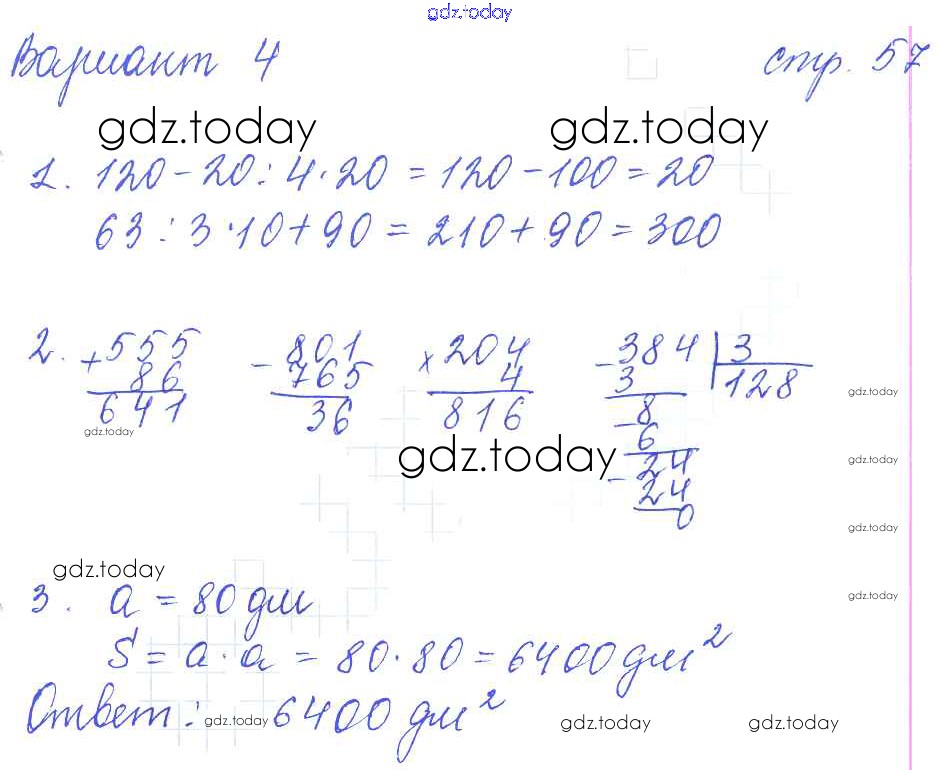 gdz.today
Вариант 4 стр. 57
gdz.today gdz.today
1. 120 - 20 : 4 · 20 = 120 - 100 = 20
63 : 3 · 10 + 90 = 210 + 90 = 300
2. + 555 - 801 × 204 - 384 | 3
86 765 4 3 128
641 36 816 - 8
gdz.today gdz.today
6
gdz.today gdz.today
- 24
24
0
gdz.today
gdz.today
3. a = 80 дм gdz.today
S = a · a = 80 · 80 = 6400 дм²
Ответ: gdz.today 6400 дм² gdz.today gdz.today